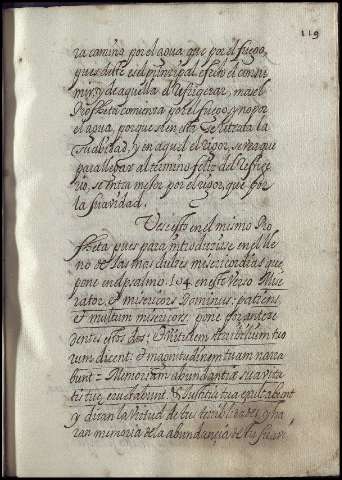 119
ra camino por el agua, que por el fuego,
pues deste es el principal efecto el consu
mir, y de aquella el Refrigerar, mas el
Propheta comienza por el fuego, y no por
el agua, porque si en esta se Retrata la
suavidad, y en aquel el rigor, se vea que
para llegar al termino feliz del Refrige
rio, se entra mejor por el rigor, que por
la suavidad.
Vese esto en el mismo Pro
pheta pues para introducirse en el lle
no de las mas dulces misericordias que
pone en el psalmo. 104 en este verso Mise
rator, et misericors Dominus: patiens,
et multum misericors, pone por antece
dentes estos dos: Virtutem terribilium tuo
rum dicent: et magnitudinem tuam narra
bunt = Memoriam abundantiæ suavita
tis tuæ eructabunt, & Justitia tua exultabunt
y diran la virtud de tus terribilidades, y ha
ran memoria de la abundancia de tu suavi